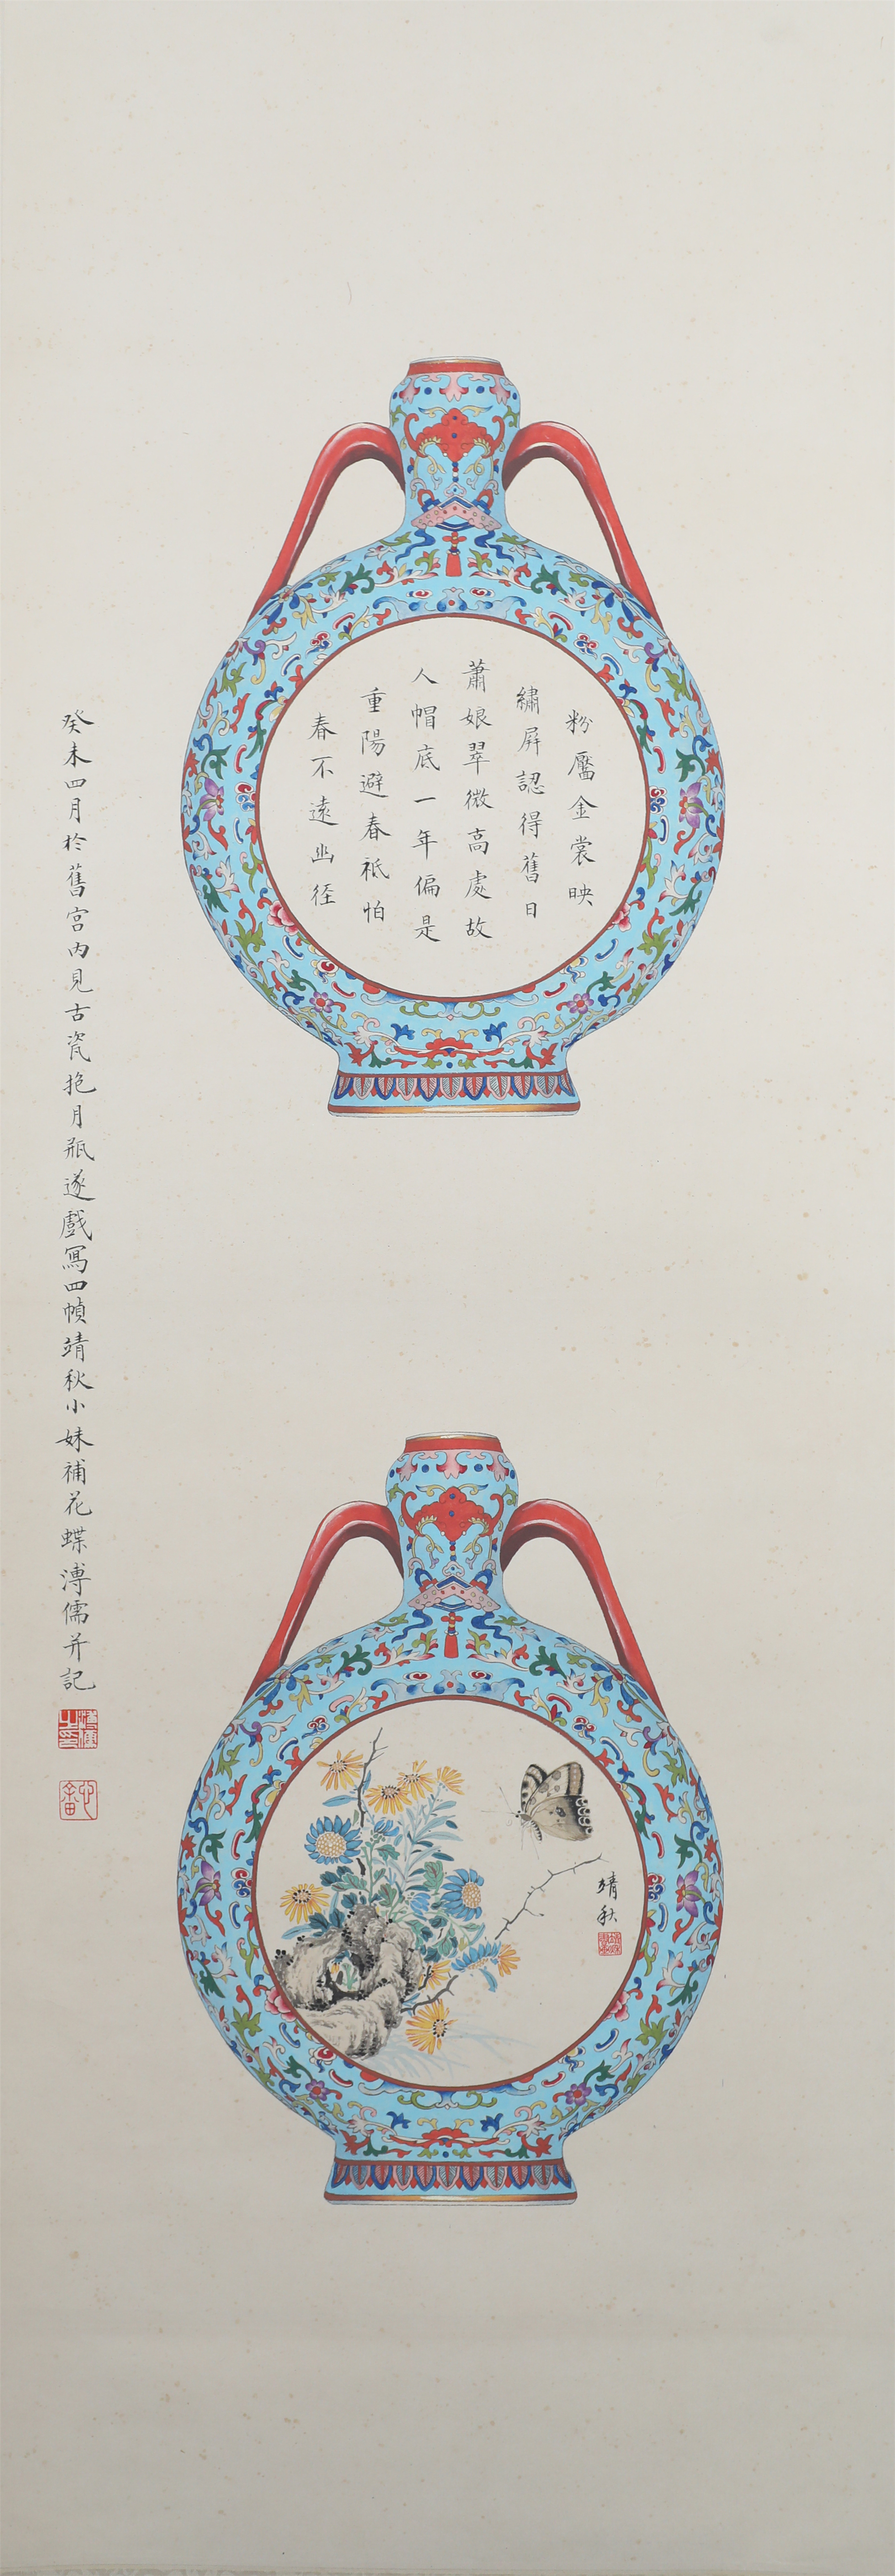 粉靨金裳映
繡屏認得舊日
蕭娘翠微高處故
人帽底一年偏是
重陽避春祗怕
春不遠幽径
癸未四月於舊宮內見古瓷抱月瓶遂戲寫四幀靖秋小妹補花蝶溥儒并記
溥儒之印
心畬
靖秋